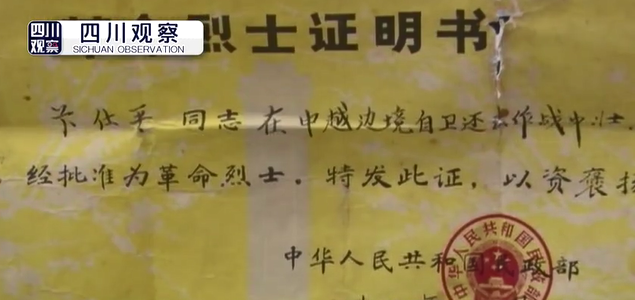 四川观察
SICHUAN OBSERVATION
革命烈士证明书
同志在中越边境自卫还击作战中壮
经批准为革命烈士。特发此证，以资褒扬
中华人民共和国民政部
中华人民共和国民政部